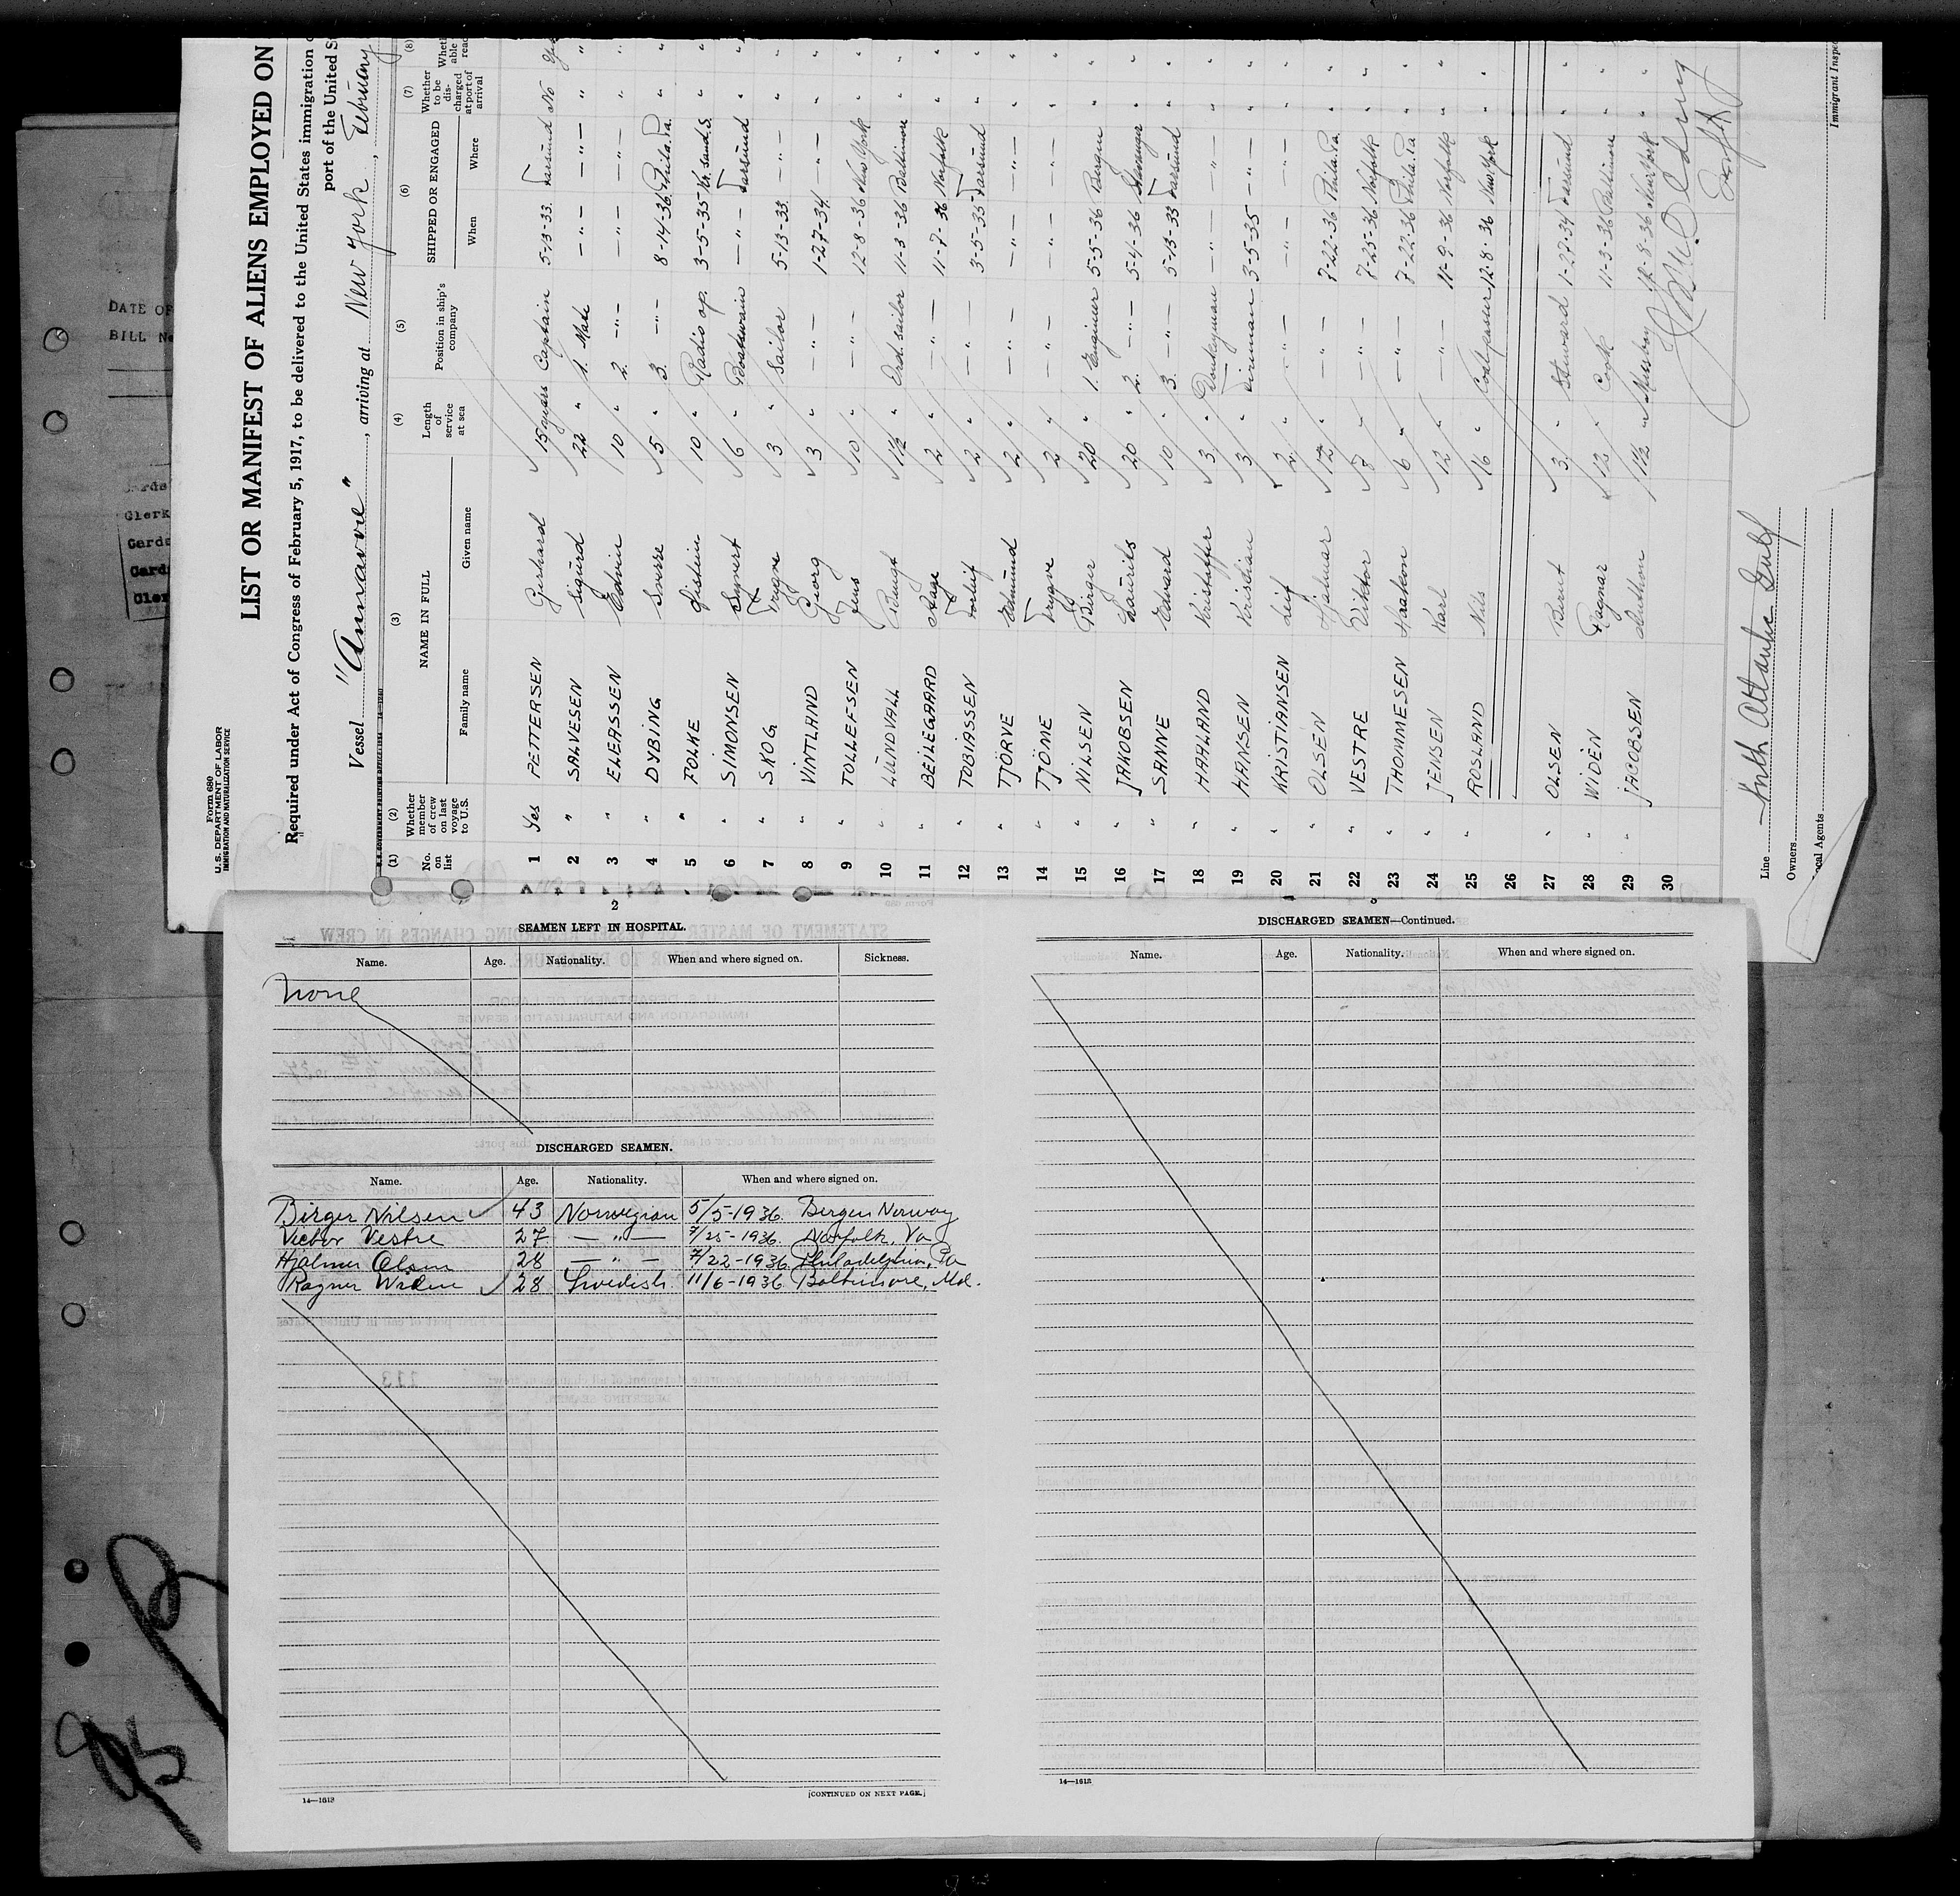 Form 680
U.S. DEPARTMENT OF LABOR
IMMIGRATION AND NATURALIZATION SERVICE
LIST OR MANIFEST OF ALIENS EMPLOYED ON
Required under Act of Congress of February 5, 1917, to be delivered to the United States immigration
port of the United
Vessel "Annavore", arriving at New York, February
(1) (2) (3) (4) (5) (6) (7) (8)
No. on list Whether member of crew on last voyage to U.S. NAME IN FULL Family name Given name Length of service at sea Position in ship's company SHIPPED OR ENGAGED When Where Whether to be discharged at port of arrival
1 Yes PETTERSEN Gerhard 15 years Captain 5-13-33 Farsund No Yes
2 " SALVESEN Sigurd 22 " 1. Mate —"— —"— " "
3 " ELEASSEN Edvin 10 " 2. —"— —"— —"— " "
4 " DYBING Sverre 5 " 3. —"— 8-14-36 Phila. Pa. " "
5 " FOLKE Öistein 10 " Radio op. 3-5-35 Kr. Sand. S. " "
6 " SIMONSEN Syvert 6 " Boatswain —"— Farsund " "
7 " SKOG Trygve 3 " Sailor 5-13-33 —"— " "
8 " VINTLAND Georg 3 " —"— 1-27-34 —"— " "
9 " TOLLEFSEN Jens 10 " —"— 12-8-36 New York " "
10 " LUNDVALL Bengt 1½ " Ord. sailor 11-3-36 Baltimore " "
11 " BEILEGAARD Aage 2 " —"— 11-7-36 Norfolk " "
12 " TOBIASSEN Torleif 2 " —"— 3-5-35 Farsund " "
13 " TJÖRVE Edmund 2 " —"— —"— —"— " "
14 " TJÖME Trygve 2 " —"— —"— —"— " "
15 " NILSEN Birger 20 " 1. Engineer 5-5-36 Bergen " "
16 " JAKOBSEN Laurits 20 " 2. —"— 5-4-36 Stavanger " "
17 " SANNE Edvard 10 " 3. —"— 5-13-33 Farsund " "
18 " HAALAND Kristoffer 3 " Donkeyman —"— —"— " "
19 " HANSEN Kristian 3 " Fireman 3-5-35 —"— " "
20 " KRISTIANSEN Leif 2 " —"— —"— —"— " "
21 " OLSEN Hjalmar 12 " —"— 7-22-36 Phila. Pa. " "
22 " VESTRE Viktor 8 " —"— 7-25-36 Norfolk " "
23 " THOMMESEN Haakon 6 " —"— 7-22-36 Phila. Pa " "
24 " JENSEN Karl 12 " —"— 11-9-36 Norfolk " "
25 " ROSLAND Nils 16 " 12-8-36 New York " "
26
27 " OLSEN Bernt 3 " Steward 1-27-34 Farsund " "
28 " WIDEN Ragnar 12 " Cook 11-3-36 Baltimore " "
29 " JACOBSEN Anthon 1½ " Messboy 12-8-36 New York " "
30
Line North Atlantic Gulf
Owners
Local Agents
Immigrant Inspe
DATE OF
BILL N
Clerk
2
SEAMEN LEFT IN HOSPITAL.
Name. Age. Nationality. When and where signed on. Sickness.
None
DISCHARGED SEAMEN.
Name. Age. Nationality. When and where signed on.
Birger Nilsen 43 Norwegian 5/5-1936 Bergen Norway
Victor Vestre 27 —"— 7/25-1936 Norfolk, Va
Hjalmar Olsen 28 —"— 7/22-1936 Philadelphia, Pa
Ragnar Widen 28 Swedish 11/6-1936 Baltimore, Md.
14—1613
[CONTINUED ON NEXT PAGE.]
3
DISCHARGED SEAMEN—Continued.
Name. Age. Nationality. When and where signed on.
14—1613
95